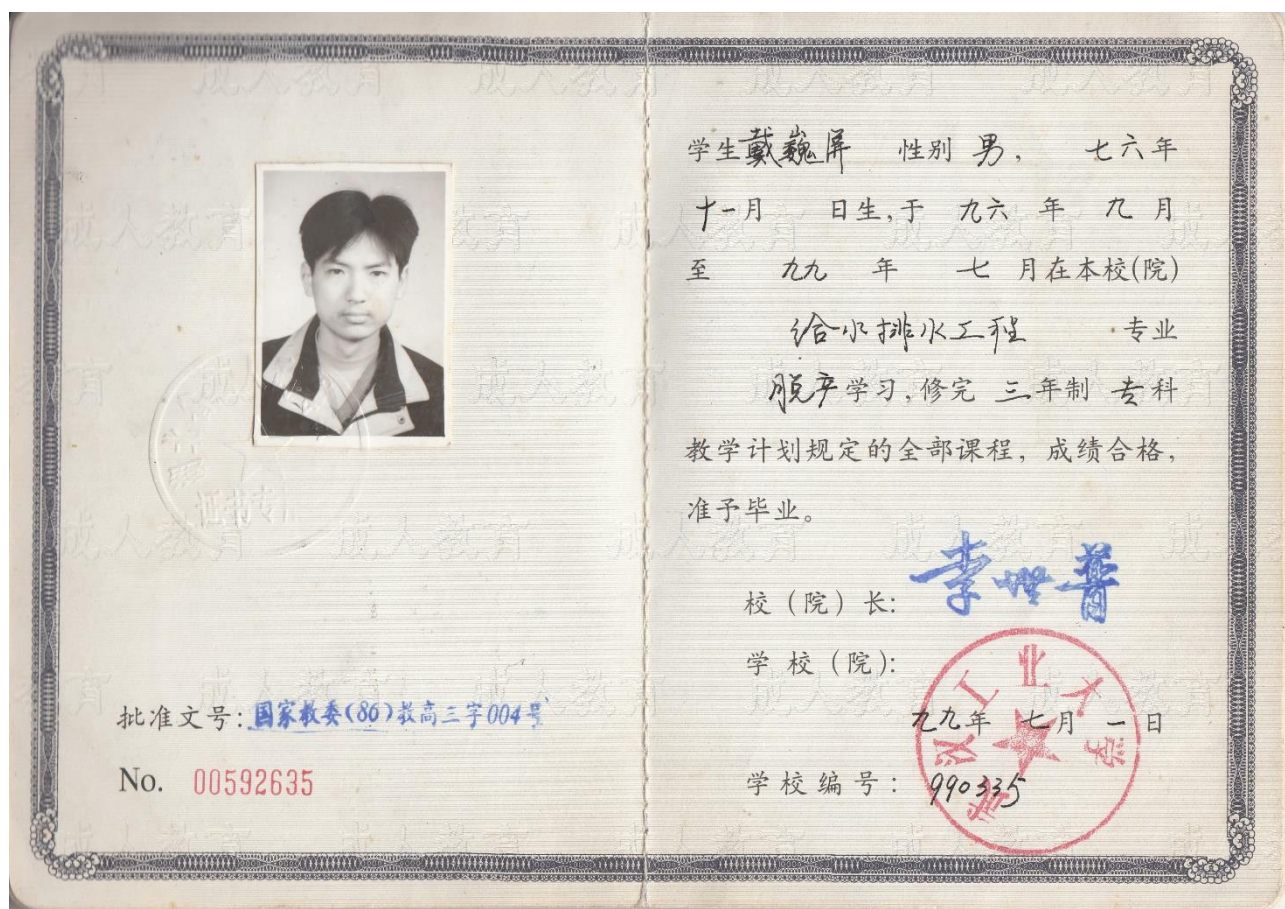 批准文号:国家教委(86)教高三字004号
No. 00592635
学生戴巍屏 性别 男, 七六年
十一月 日生,于 九六 年 九 月
至 九九 年 七 月在本校(院)
给水排水工程 专业
脱产学习,修完 三年制 专科
教学计划规定的全部课程,成绩合格,
准予毕业。
校(院)长:李世普
学校(院):
武汉工业大学
九九年 七月 一日
学校编号:990335
成人教育
证书专用